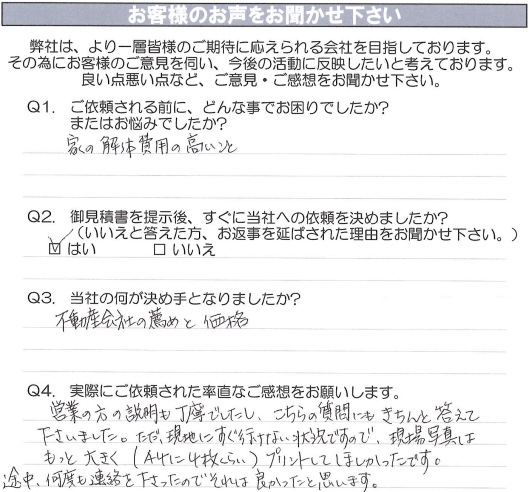 お客様のお声をお聞かせ下さい
弊社は、より一層皆様のご期待に応えられる会社を目指しております。
その為にお客様のご意見を伺い、今後の活動に反映したいと考えております。
良い点悪い点など、ご意見・ご感想をお聞かせ下さい。
Q1. ご依頼される前に、どんな事でお困りでしたか?
またはお悩みでしたか?
家の解体費用の高いこと
Q2. 御見積書を提示後、すぐに当社への依頼を決めましたか?
(いいえと答えた方、お返事を延ばされた理由をお聞かせ下さい。)
☑ はい □ いいえ
Q3. 当社の何が決め手となりましたか?
不動産会社の薦めと価格
Q4. 実際にご依頼された率直なご感想をお願いします。
営業の方の説明も丁寧でしたし、こちらの質問にもきちんと答えて
下さいました。ただ、現地にすぐ行けない状況ですので、現場写真は
もっと大きく(A4に4枚くらい)プリントしてほしかったです。
途中、何度も連絡を下さったのでそれは良かったと思います。